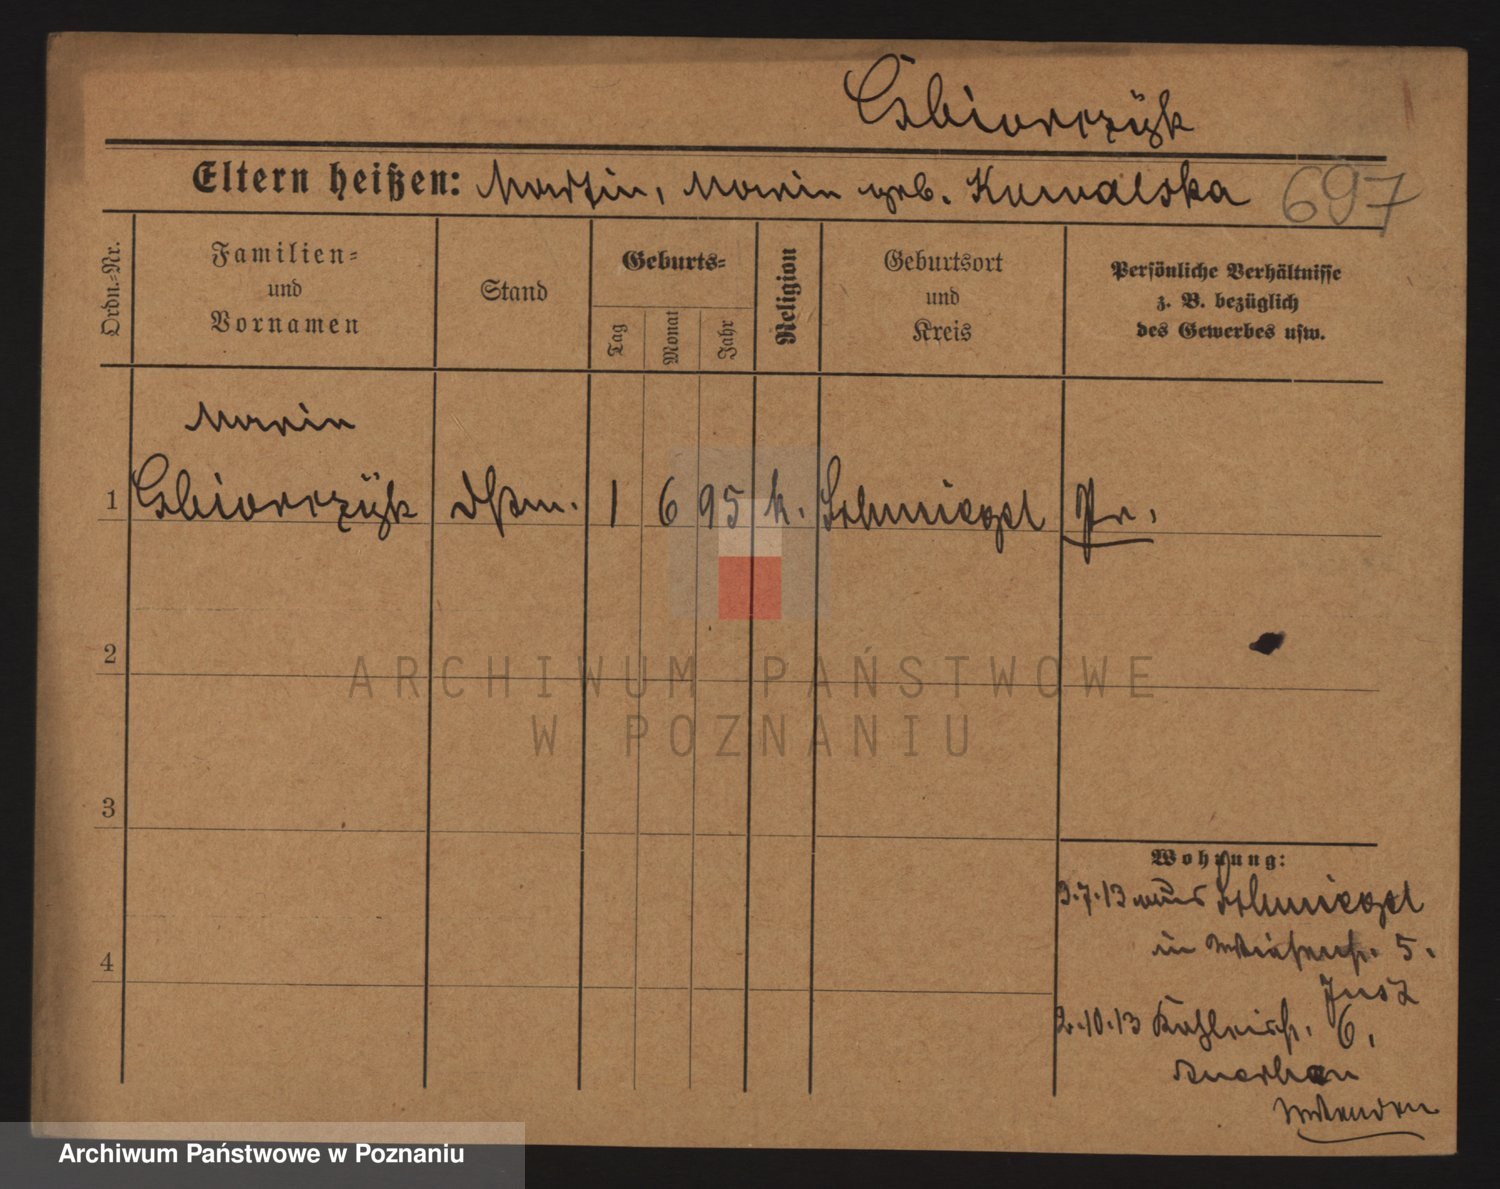 Cbiorczyk
Eltern heißen: Martin, Maria geb. Kowalska
697
Ordn.-Nr.
Familien-
und
Vornamen
Stand
Geburts-
Tag
Monat
Jahr
Religion
Geburtsort
und
Kreis
Persönliche Verhältnisse
z. B. bezüglich
des Gewerbes usw.
Maria
1 Cbiorczyk 1 6 95 k. Schmiegel Pr.
2
3
4
Wohnung:
3.7.13 aus Schmiegel
in 5.
2.10.13 6.
ARCHIWUM PAŃSTWOWE
W POZNANIU
Archiwum Państwowe w Poznaniu